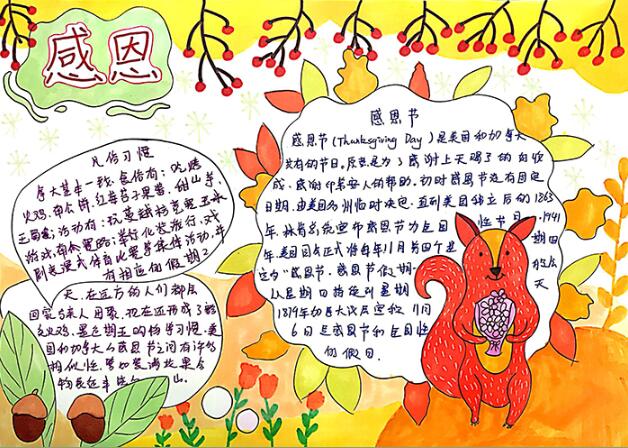 感恩
感恩节
感恩节(Thanksgiving Day)是美国和加拿大
共有的节日,原意是为了感谢上天赐予的好收
成、感谢印第安人的帮助。初时感恩节没有固定
日期,由美国各州临时决定,直到美国独立后的1863
年,林肯总统宣布感恩节为全国性节日。1941
年,美国国会正式将每年11月第四个星期四
定为"感恩节。感恩节假期一般会
从星期四持续到星期天
1879年加拿大议会宣称11月
6日是感恩节和全国性
的假日。
风俗习惯
拿大基本一致,食俗有:吃烤
火鸡、南瓜饼、红莓苔子果酱、甜山芋、
玉蜀黍;活动有:玩蔓越桔竞赛、玉米
游戏、南瓜赛跑;举行化装游行、戏
剧表演或体育比赛等集体活动,并
有相应的假期2
天,在远方的人们都会
回家与亲人团聚。现在还形成了豁
免火鸡、黑色期五购物等习惯。美
国和加拿大的感恩节之间有许多
相似性,譬如装满